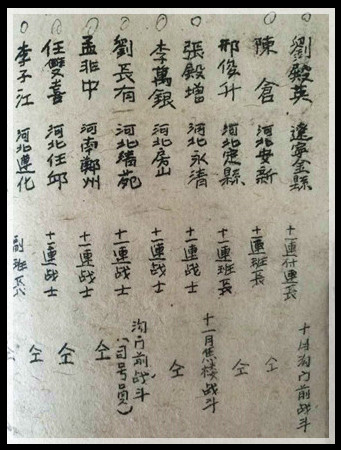 ○ 劉殿英 遼宁金縣 十一連付連長 十月沟门前战斗
○ 陳倉 河北安新 十一連班長 仝
○ 邢俊升 河北定縣 十一連班長 十一月焦楼战斗
○ 張殿增 河北永清 十一連战士 仝
○ 李萬銀 河北房山 十一連战士
○ 劉長有 河北清苑 十一連战士 沟门前战斗(司号員)
○ 孟非中 河南鄭州 十一連战士 仝
○ 任雙喜 河北任邱 十一連战士 仝
○ 李子江 河北遵化 副班長 仝